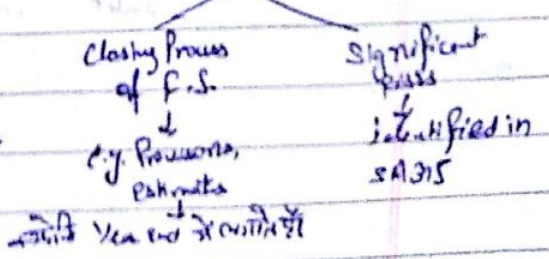 Closing Process
of F.S.
↓
e.g. Provisions,
estimates
↓
Year end में
Significant
Risks
↓
identified in
SA315